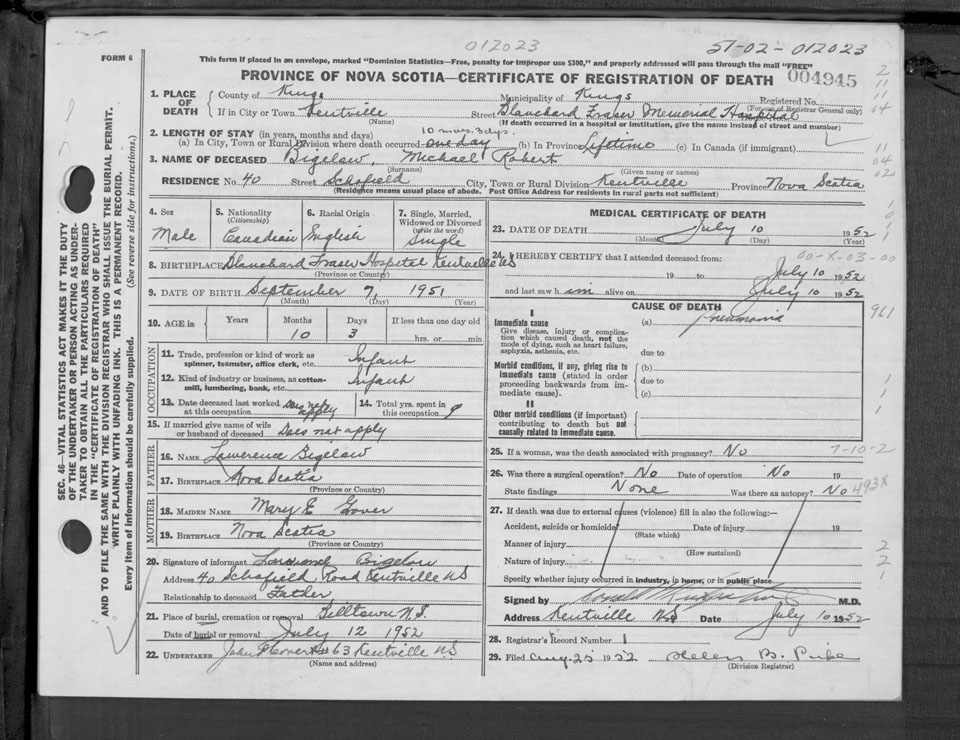 012023
51-02-012023
FORM 6
This form if placed in an envelope, marked "Dominion Statistics—Free, penalty for improper use $300," and properly addressed will pass through the mail "FREE"
PROVINCE OF NOVA SCOTIA—CERTIFICATE OF REGISTRATION OF DEATH 004945
1. PLACE OF DEATH
County of Kings Municipality of Kings Registered No.
(For use of Registrar General only)
If in City or Town Kentville Street Blanchard Fraser Memorial Hospital
(Name) (If death occurred in a hospital or institution, give the name instead of street and number)
2. LENGTH OF STAY (in years, months and days) 10 mos. 3 dys.
(a) In City, Town or Rural Division where death occurred one day (b) In Province Lifetime (c) In Canada (if immigrant)
3. NAME OF DECEASED Bigelow Michael Robert
(Surname) (Given name or names)
RESIDENCE No. 40 Street Schofield City, Town or Rural Division Kentville Province Nova Scotia
(Residence means usual place of abode. Post Office Address for residents in rural parts not sufficient)
4. Sex Male
5. Nationality (Citizenship) Canadian
6. Racial Origin English
7. Single, Married, Widowed or Divorced (write the word) Single
8. BIRTHPLACE Blanchard Fraser Hospital Kentville NS
(Province or Country)
9. DATE OF BIRTH September 7, 1951
(Month) (Day) (Year)
10. AGE in Years Months 10 Days 3 If less than one day old hrs. or min.
OCCUPATION
11. Trade, profession or kind of work as spinner, teamster, office clerk, etc. Infant
12. Kind of industry or business, as cotton-mill, lumbering, bank, etc. Infant
13. Date deceased last worked at this occupation Does not apply
14. Total yrs. spent in this occupation
15. If married give name of wife or husband of deceased Does not apply
FATHER
16. NAME Lawerence Bigelow
17. BIRTHPLACE Nova Scotia
(Province or Country)
MOTHER
18. MAIDEN NAME Mary E
19. BIRTHPLACE Nova Scotia
(Province or Country)
20. Signature of informant Lawrence Bigelow
Address 40 Schofield Road Kentville NS
Relationship to deceased Father
21. Place of burial, cremation or removal Billtown N.S.
Date of burial or removal July 12 1952
22. UNDERTAKER 63 Kentville NS
(Name and address)
MEDICAL CERTIFICATE OF DEATH
23. DATE OF DEATH July 10 1952
(Month) (Day) (Year)
24. I HEREBY CERTIFY that I attended deceased from: 00-X-03-00
19 to July 10 1952
and last saw him alive on July 10 1952
CAUSE OF DEATH
I
Immediate cause
Give disease, injury or complication which caused death, not the mode of dying, such as heart failure, asphyxia, asthenia, etc.
(a) Pneumonia
due to
Morbid conditions, if any, giving rise to immediate cause (stated in order proceeding backwards from immediate cause).
(b)
due to
(c)
II
Other morbid conditions (if important) contributing to death but not causally related to immediate cause.
25. If a woman, was the death associated with pregnancy? No 7-10-2
26. Was there a surgical operation? No Date of operation No 19
State findings None Was there an autopsy? No 493X
27. If death was due to external causes (violence) fill in also the following:—
Accident, suicide or homicide Date of injury 19
(State which)
Manner of injury
(How sustained)
Nature of injury
Specify whether injury occurred in industry, in home, or in public place
Signed by M.D.
Address Kentville N.S. Date July 10 1952
28. Registrar's Record Number 1
29. Filed Aug. 25 1952 Helen B.
(Division Registrar)
SEC. 46—VITAL STATISTICS ACT MAKES IT THE DUTY
OF THE UNDERTAKER OR PERSON ACTING AS UNDER-
TAKER TO OBTAIN ALL THE PARTICULARS REQUIRED
IN THE "CERTIFICATE OF REGISTRATION OF DEATH"
AND TO FILE THE SAME WITH THE DIVISION REGISTRAR WHO SHALL ISSUE THE BURIAL PERMIT.
WRITE PLAINLY WITH UNFADING INK. THIS IS A PERMANENT RECORD.
Every item of information should be carefully supplied. (See reverse side for instructions.)